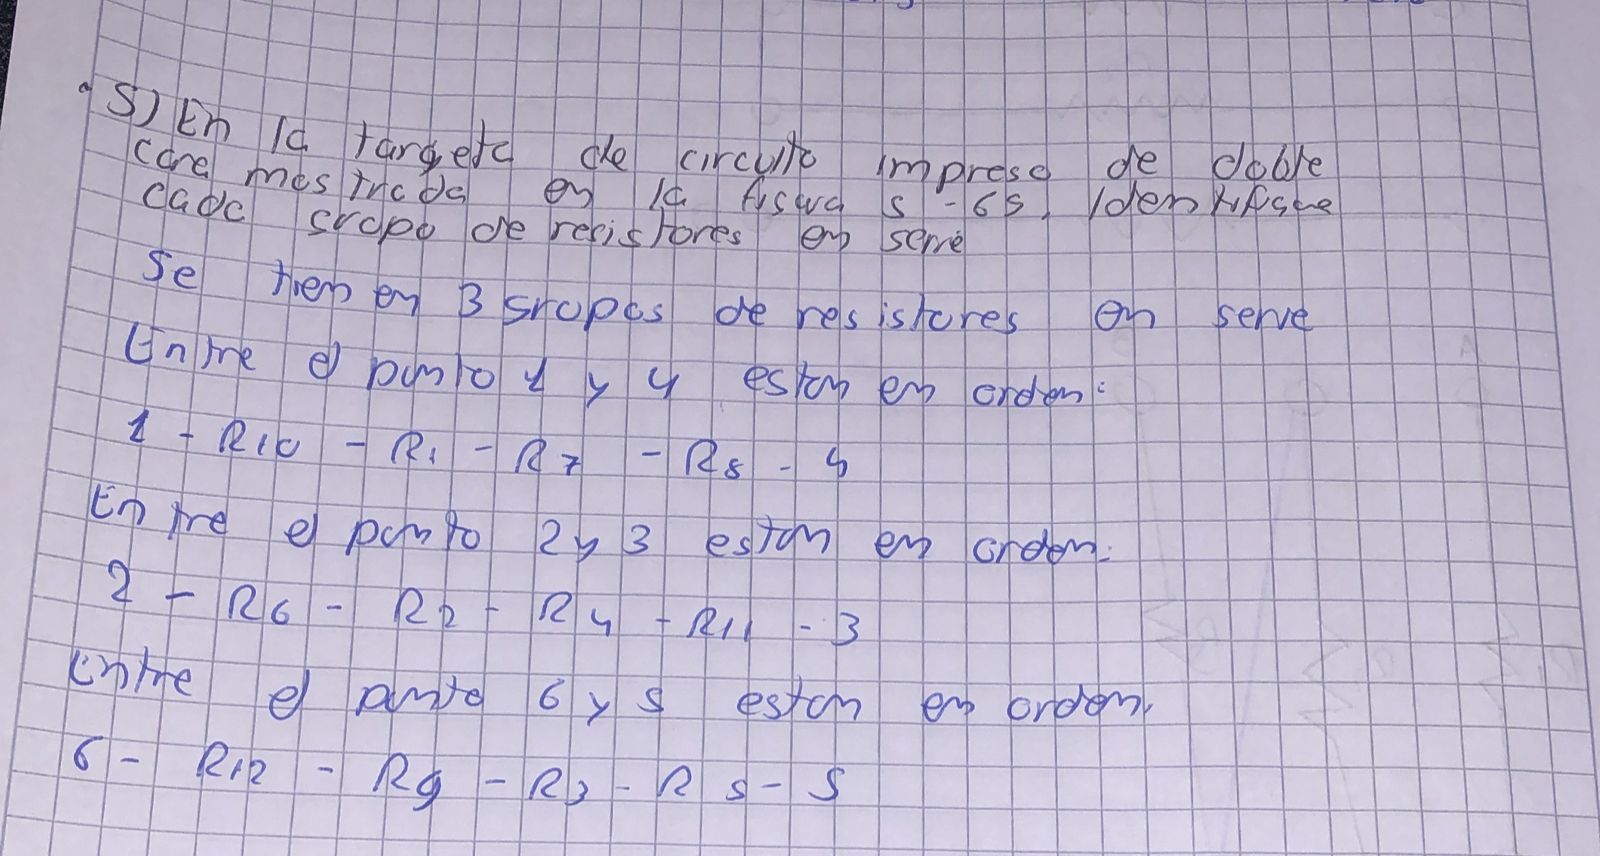 5) En la targeta de circuito impreso de doble
cara mostrada en la figura 5-65, Identifique
cada grupo de resistores en serie
Se tienen en 3 grupos de resistores en serie
Entre el punto 1 y 4 estan en orden:
1 - R10 - R1 - R7 - R8 - 4
Entre el punto 2 y 3 estan en orden:
2 - R6 - R2 - R4 - R11 - 3
Entre el punto 6 y 5 estan en orden.
6 - R12 - R9 - R3 - R5 - 5